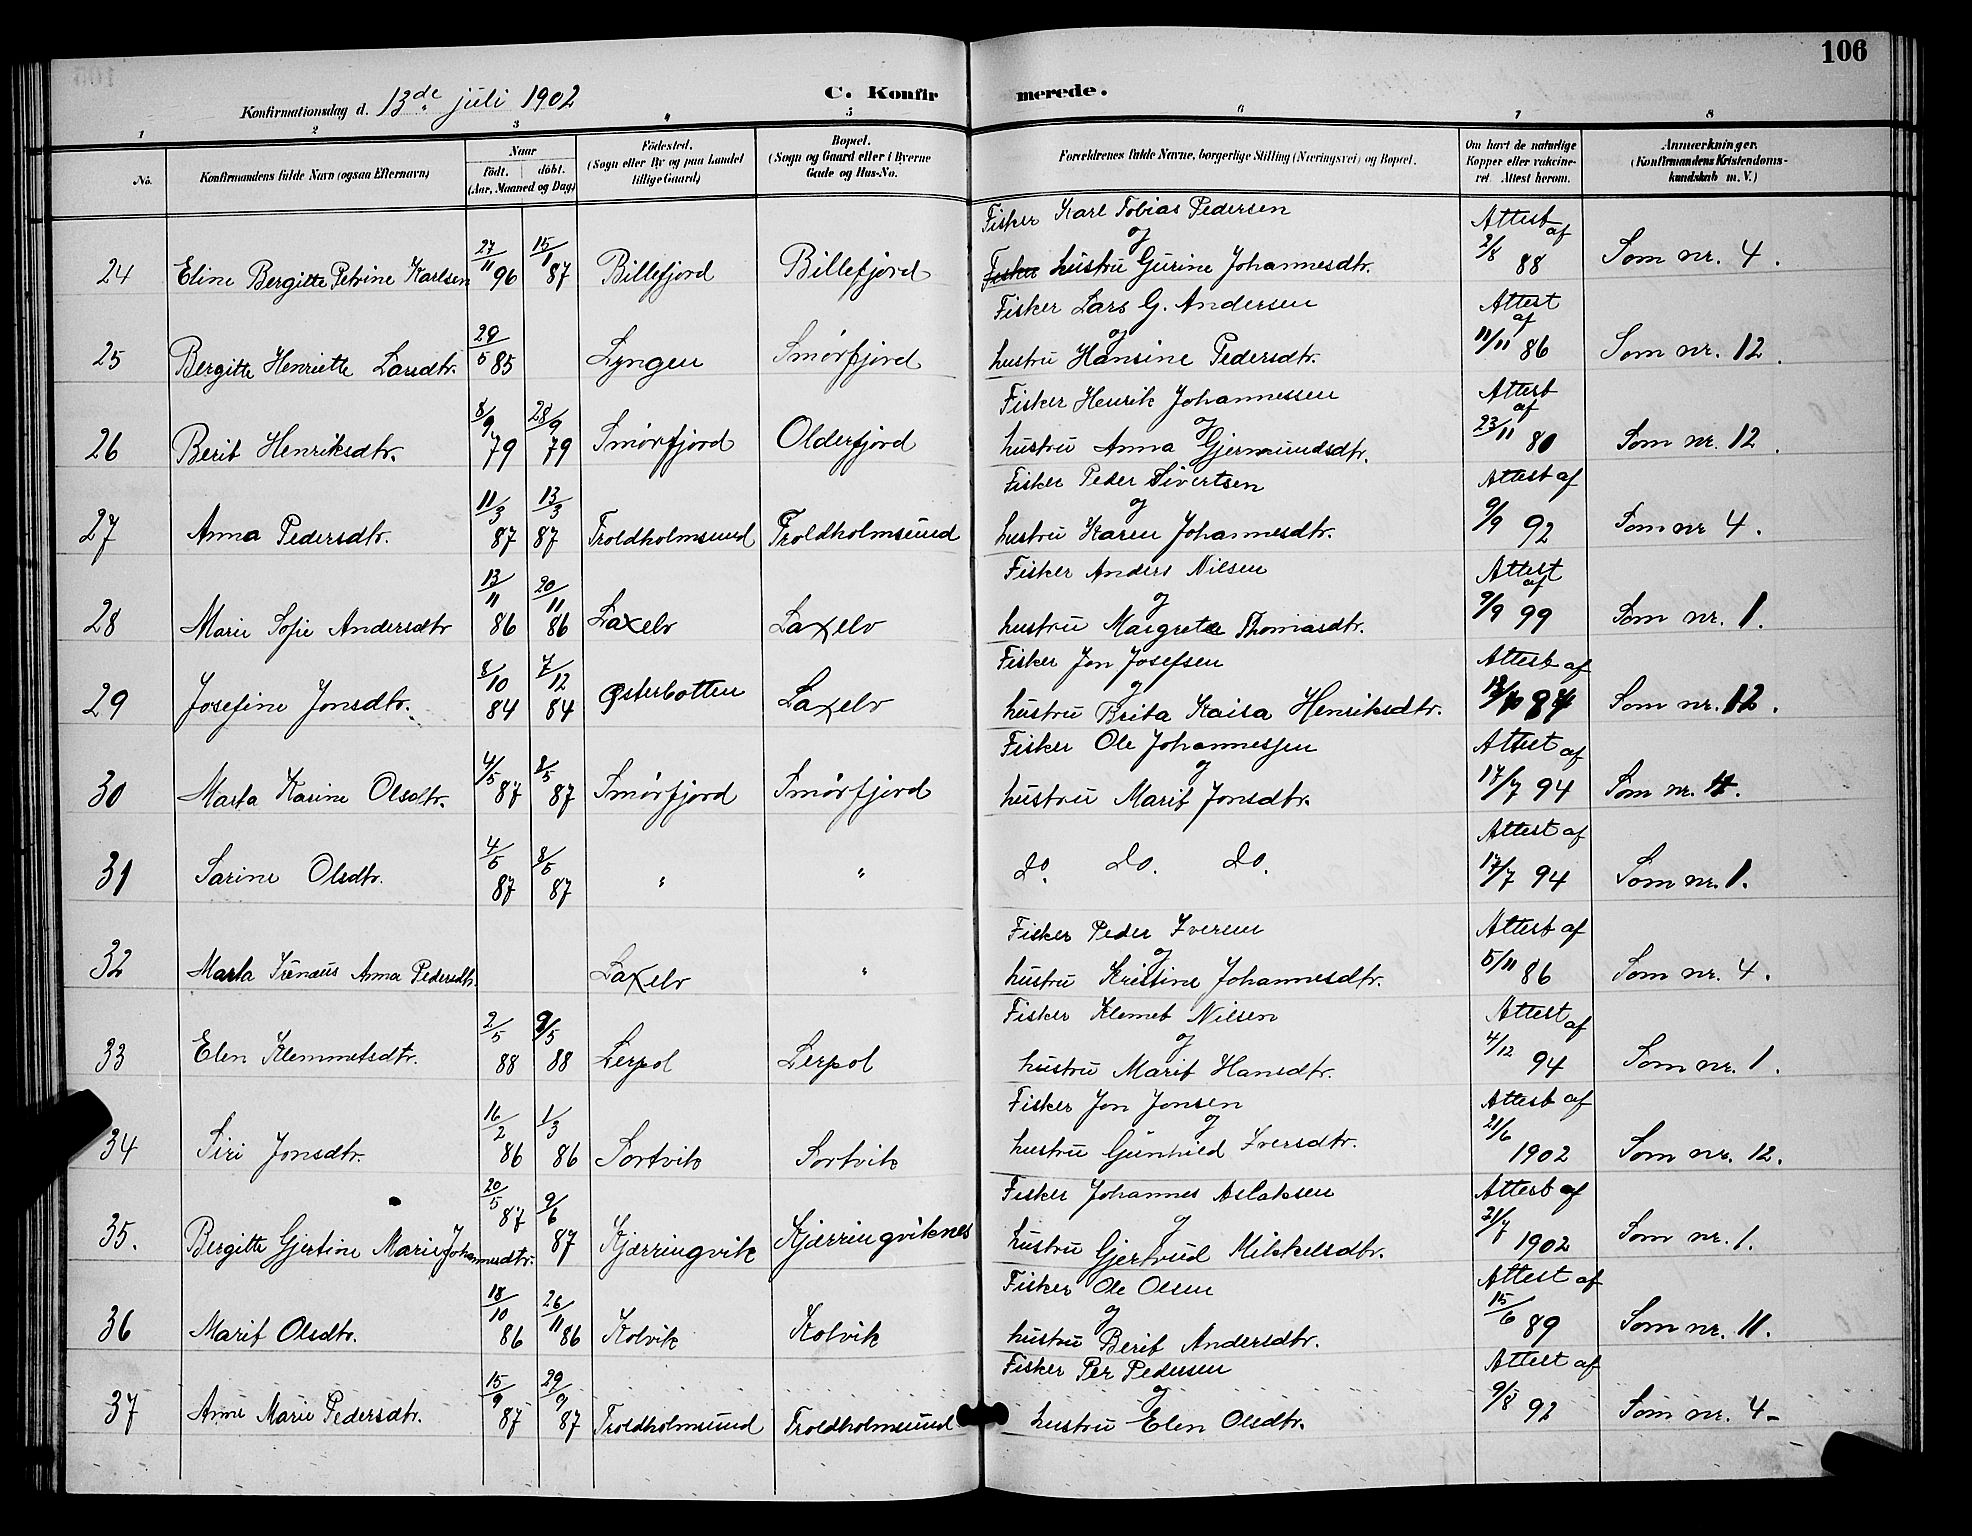 106
Konfirmationsdag d. 13de juli 1902
C. Konfirmerede.
1 2 3 4 5 6 7 8
No.
Konfirmandens fulde Navn (ogsaa Efternavn)
Naar
födt. döbt.
(Aar, Maaned og Dag)
Födested.
(Sogn eller By og paa Landet
tillige Gaard)
Bopæl.
(Sogn og Gaard eller i Byerne
Gade og Hus-No.
Forældrenes fulde Navne, borgerlige Stilling (Næringsvei) og Bopæl.
Om havt de naturlige
Kopper eller vakcine-
ret. Attest herom.
Anmærkninger.
(Konfirmandens Kristendoms-
kundskab m. V.)
Fisker Karl Tobias Pedersen Attest af
24 Eline Bergitte Petrine Karlsen 27/11 96 15/1 87 Billefjord Billefjord og Fisker hustru Gurine Johannesdtr. 2/8 88 Som nr. 4.
Fisker Lars G. Andersen Attest af
25 Bergitte Henriette Larsdtr. 29/5 85 Lyngen Smörfjord og hustru Hansine Pedersdtr. 11/11 86 Som nr. 12.
Fisker Henrik Johannessen Attest af
26 Berit Henriksdtr. 8/9 79 28/9 79 Smörfjord Olderfjord og hustru Anna Gjermundsdtr. 23/11 80 Som nr. 12.
Fisker Peder Sivertsen Attest af
27 Anna Pedersdtr. 11/3 87 13/3 87 Troldholmsund Troldholmsund og hustru Karen Johannesdtr. 9/9 92 Som nr 4.
Fisker Anders Nilsen Attest af
28 Marie Sofie Andersdtr 13/11 86 20/11 86 Laxelv Laxelv og hustru Margrete Thomasdtr. 9/9 99 Som nr. 1.
Fisker Jon Josefsen Attest af
29 Josefine Jonsdtr. 8/10 84 7/12 84 Østerbotten Laxelv og hustru Brita Kaisa Henriksdtr. Som nr. 12.
Fisker Ole Johannessen Attest af
30 Marta Karine Olsdtr. 4/5 87 8/5 87 Smörfjord Smörfjord og hustru Marit Jonsdtr. 17/7 94 Som nr. 4.
Attest af
31 Sarine Olsdtr. 4/5 87 8/5 87 " " do. do. do. 17/7 94 Som nr. 1.
Fisker Peder Iversen Attest af
32 Marta Irenæus Anna Pedersdtr. Laxelv " og hustru Kristine Johannesdtr. 5/11 86 Som nr. 4.
Fisker Klemet Nilsen Attest af
33 Elen Klemmetsdtr. 2/5 88 9/5 88 Lerpol Lerpol og hustru Marit Hansdtr. 4/12 94 Som nr. 1.
Fisker Jon Jonsen Attest af
34 Siri Jonsdtr. 16/2 86 1/3 86 Sortvik Sortvik og hustru Gunhild Iversdtr. 21/6 1902 Som nr. 12.
Fisker Johannes Aslaksen Attest af
35. Bergitte Gjertine Marie Johannesdtr. 20/5 87 9/6 87 Kjærringvik Kjærringviknes og hustru Gjertrud Mikkelsdtr. 21/7 1902 Som nr. 1.
Fisker Ole Olsen Attest af
36 Marit Olsdtr. 18/10 86 26/11 86 Kolvik Kolvik og hustru Berit Andersdtr. 15/6 89 Som nr. 11.
Fisker Per Pedersen Attest af
37 Anne Marie Pedersdtr. 15/9 87 29/9 87 Troldholmsund Troldholmsund og hustru Elen Olsdtr. 9/8 92 Som nr. 4-